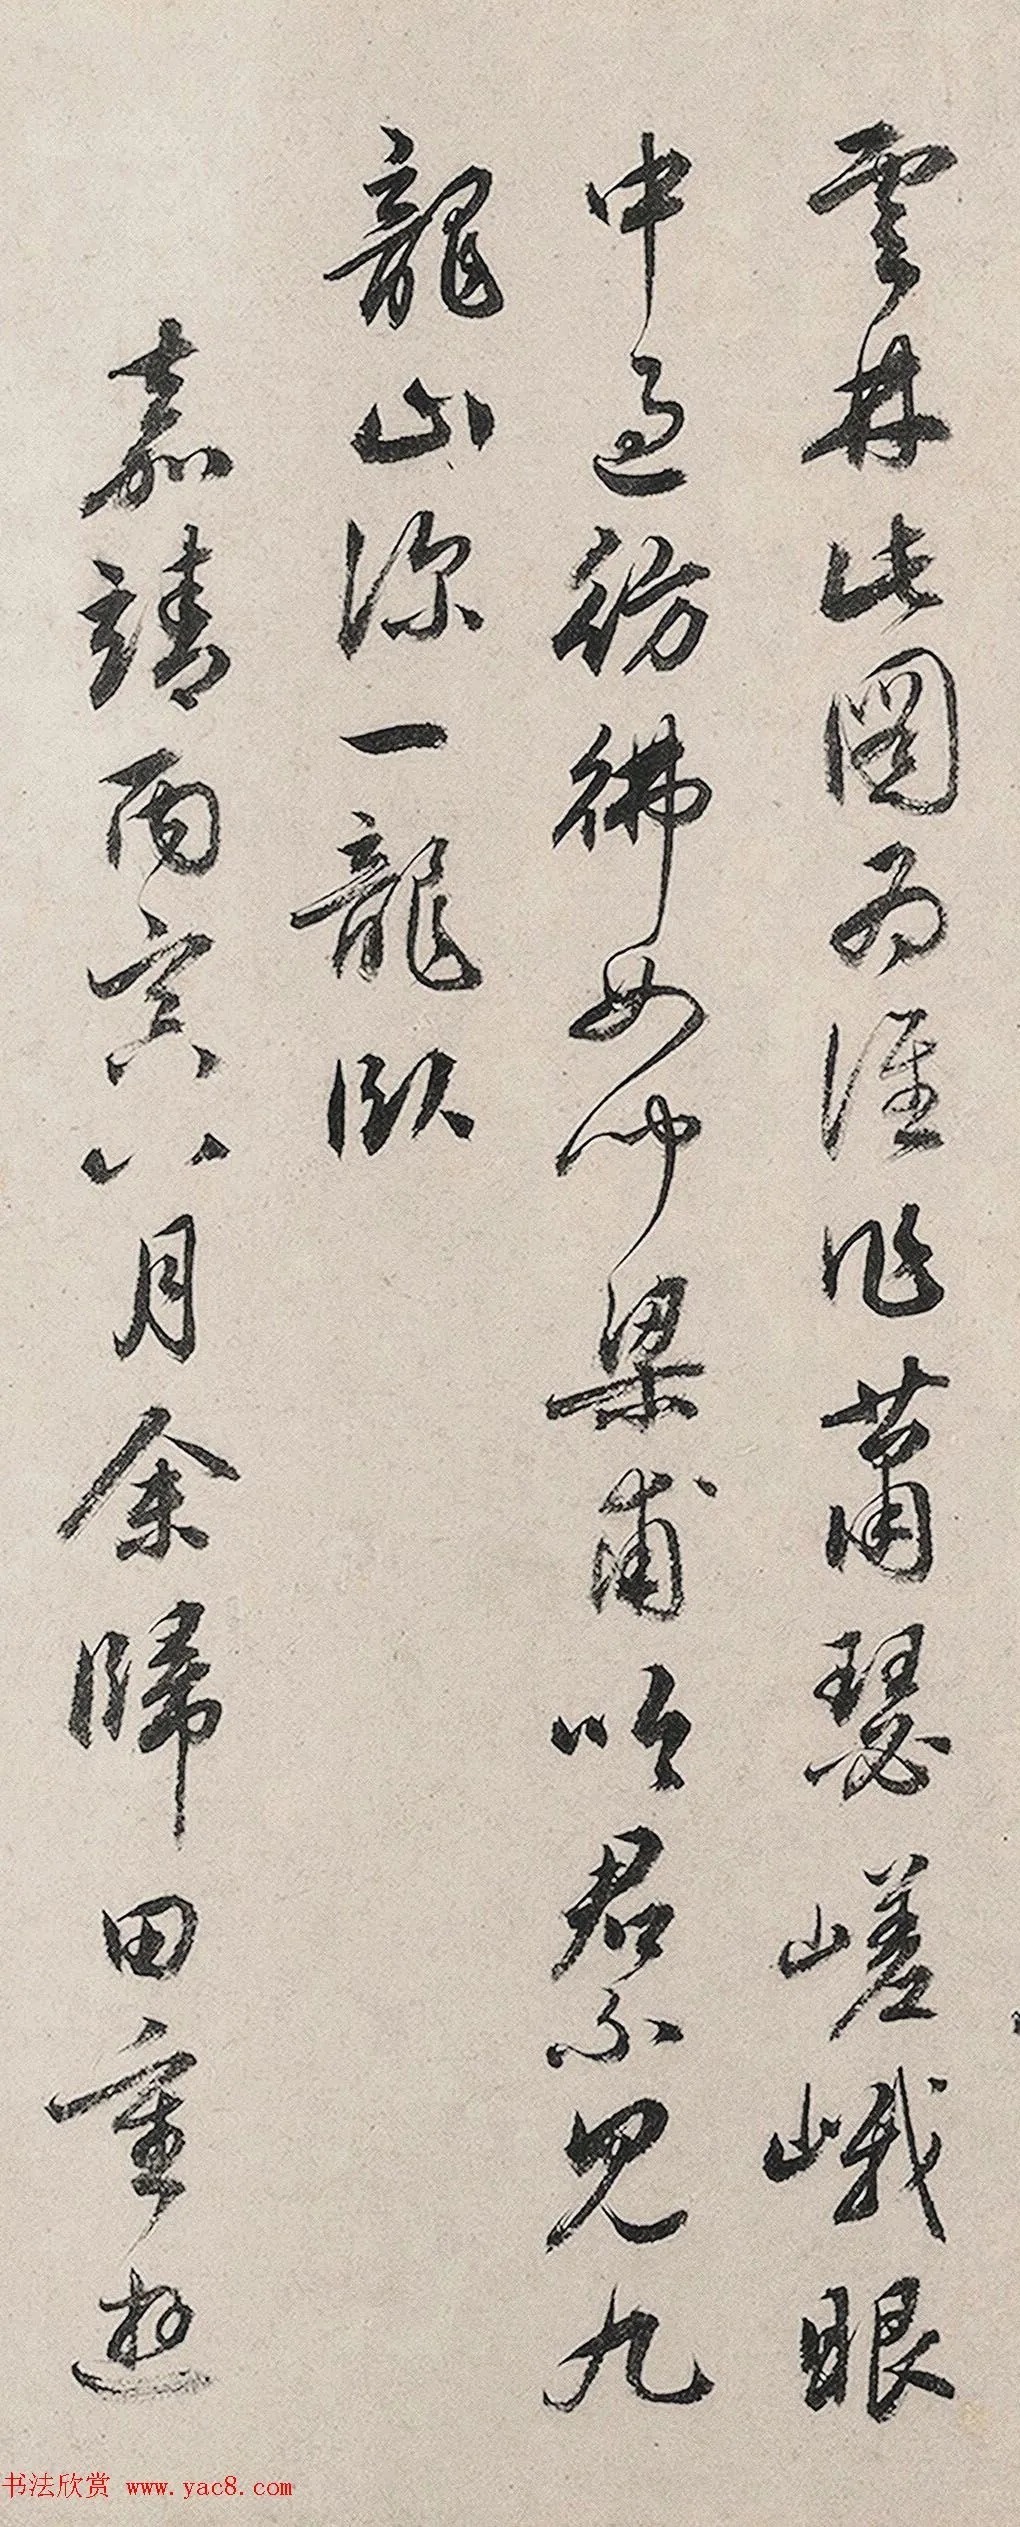 雲林此圖為誰作蕭瑟嵯峨眼
中過彷彿如聞梁甫吟君不見九
龍山深一龍臥
嘉靖丙寅八月余歸田重遊
书法欣赏 www.yac8.com